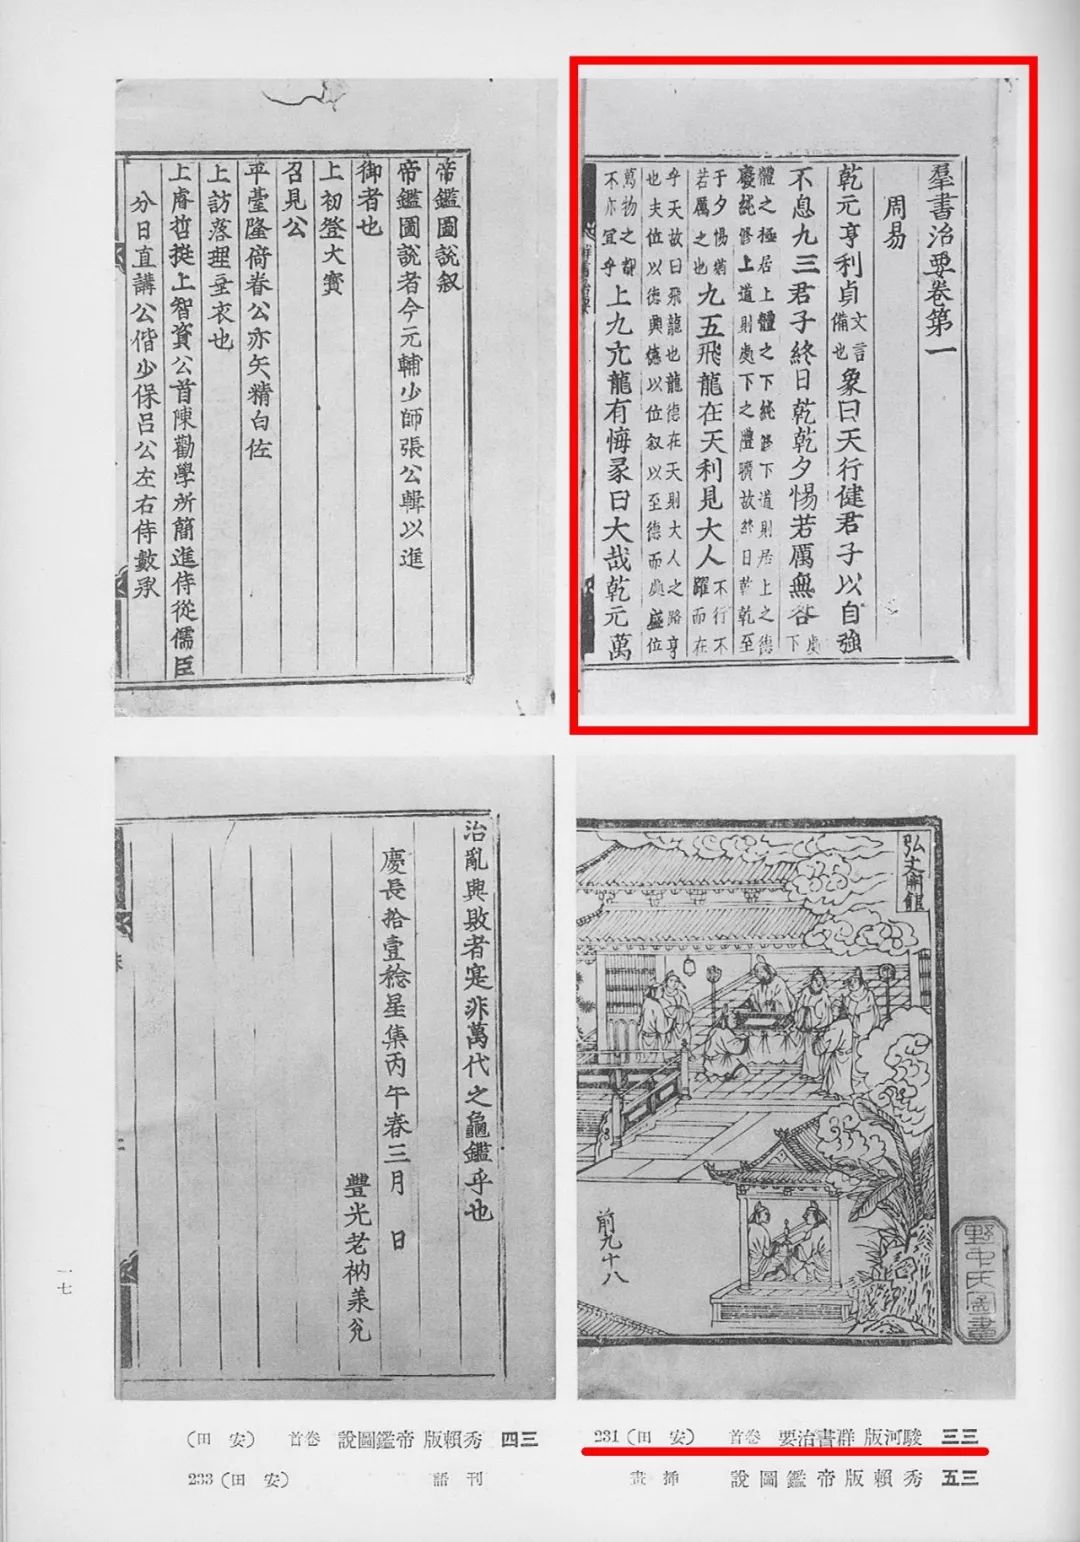 羣書治要卷第一
周易
乾元亨利貞文言備也象曰天行健君子以自強
不息九三君子終日乾乾夕惕若厲無咎處下
體之極居上體之下純修下道則居上之德
廢純修上道則處下之禮曠故終日乾乾至
于夕惕猶若厲之也九五飛龍在天利見大人不行不躍而在
乎天故曰飛龍也龍德在天則大人之路亨
也夫位以德興德以位叙以至德而處盛位
萬物之覩不亦宜乎上九亢龍有悔彖曰大哉乾元萬
帝鑑圖說叙
帝鑑圖說者今元輔少師張公輯以進
御者也
上初登大寳
召見公
平臺隆倚眷公亦矢精白佐
上訪落理垂衣也
上睿哲挺上智資公首陳勸學所簡進侍從儒臣
分日直講公偕少保呂公左右侍數承
弘文開館
前九十八
野中氏圖畫
治亂興敗者寔非萬代之龜鑑乎也
慶長拾壹稔星集丙午春三月 日
豐光老衲兼兊
一七
三三 駿河版 群書治要 卷首 (安田) 231
三四 秀賴版 帝鑑圖說 卷首 (安田)
三五 秀賴版帝鑑圖說 揷畫
刊語 (安田) 233